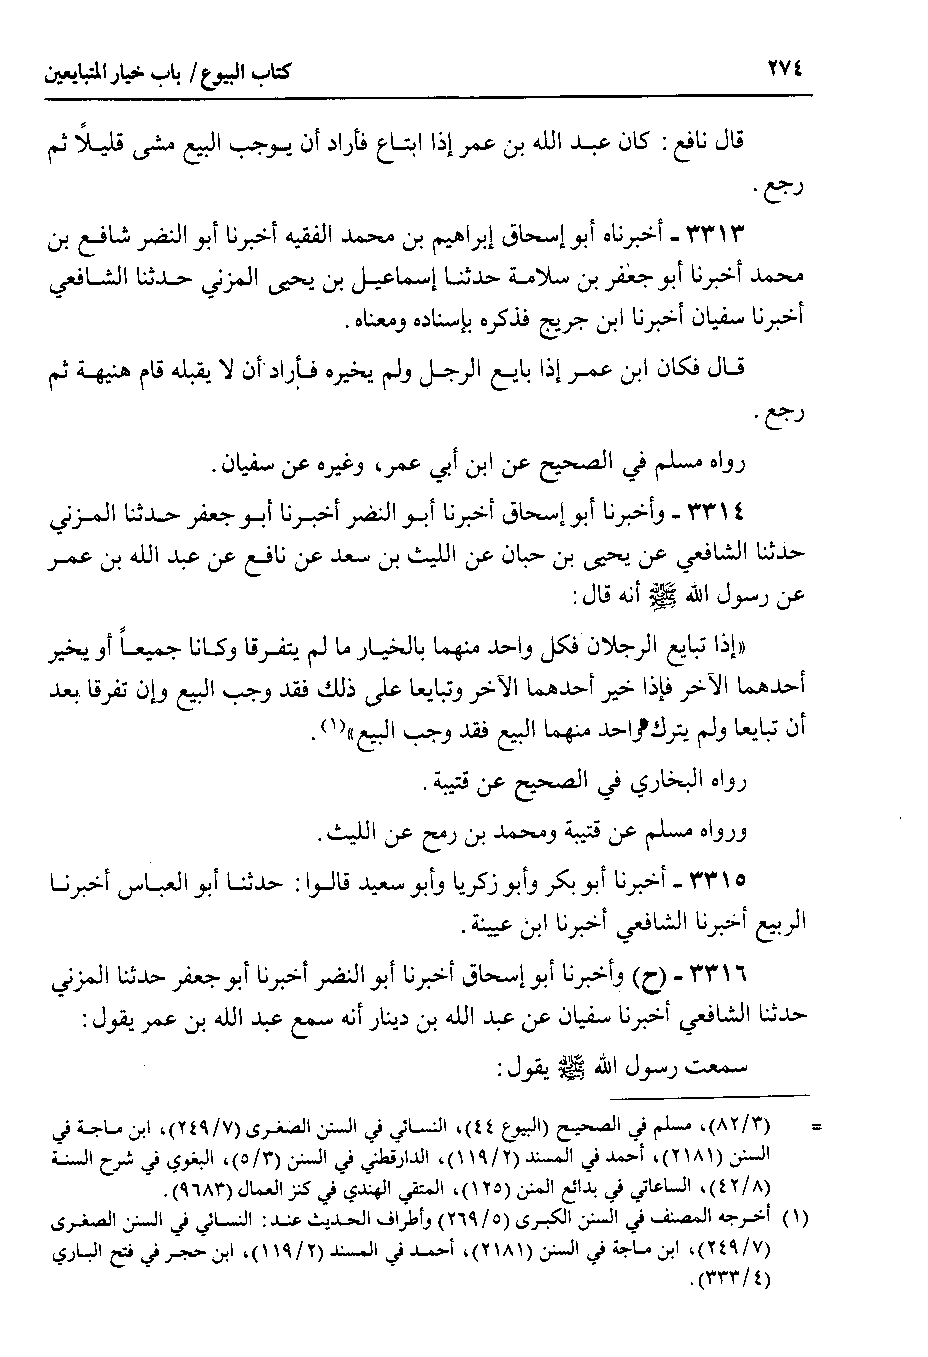 ٢٧٤ كتاب البيوع/ باب خيار المتبايعين
قال نافع : كان عبد الله بن عمر إذا ابتاع فأراد أن يوجب البيع مشى قليلاً ثم
رجع .
٣٣١٣ - أخبرناه أبو إسحاق إبراهيم بن محمد الفقيه أخبرنا أبو النضر شافع بن
محمد أخبرنا أبو جعفر بن سلامة حدثنا إسماعيل بن يحيى المزني حدثنا الشافعي
أخبرنا سفيان أخبرنا ابن جريج فذكره بإسناده ومعناه .
قال فكان ابن عمر إذا بايع الرجل ولم يخيره فأراد أن لا يقبله قام هنيهة ثم
رجع .
رواه مسلم في الصحيح عن ابن أبي عمر، وغيره عن سفيان .
٣٣١٤ - وأخبرنا أبو إسحاق أخبرنا أبو النضر أخبرنا أبو جعفر حدثنا المزني
حدثنا الشافعي عن يحيى بن حبان عن الليث بن سعد عن نافع عن عبد الله بن عمر
عن رسول الله ﷺ أنه قال :
«إذا تبايع الرجلان فكل واحد منهما بالخيار ما لم يتفرقا وكانا جميعاً أو يخير
أحدهما الآخر فإذا خير أحدهما الآخر وتبايعا على ذلك فقد وجب البيع وإن تفرقا بعد
أن تبايعا ولم يترك واحد منهما البيع فقد وجب البيع»(١) .
رواه البخاري في الصحيح عن قتيبة .
ورواه مسلم عن قتيبة ومحمد بن رمح عن الليث .
٣٣١٥ - أخبرنا أبو بكر وأبو زكريا وأبو سعيد قالوا : حدثنا أبو العباس أخبرنا
الربيع أخبرنا الشافعي أخبرنا ابن عيينة .
٣٣١٦ - (ح) وأخبرنا أبو إسحاق أخبرنا أبو النضر أخبرنا أبو جعفر حدثنا المزني
حدثنا الشافعي أخبرنا سفيان عن عبد الله بن دينار أنه سمع عبد الله بن عمر يقول :
سمعت رسول الله ﷺ يقول :
= (٨٢/٣)، مسلم في الصحيح (البيوع ٤٤)، النسائي في السنن الصغرى (٢٤٩/٧)، ابن ماجة في
السنن (٢١٨١)، أحمد في المسند (١١٩/٢)، الدارقطني في السنن (٥/٣)، البغوي في شرح السنة
(٤٢/٨)، الساعاتي في بدائع المنن (١٢٥)، المتقي الهندي في كنز العمال (٩٦٨٣).
(١) أخرجه المصنف في السنن الكبرى (٢٦٩/٥) وأطراف الحديث عند : النسائي في السنن الصغرى
(٢٤٩/٧)، ابن ماجة في السنن (٢١٨١)، أحمد في المسند (١١٩/٢)، ابن حجر في فتح الباري
(٣٣٣/٤).